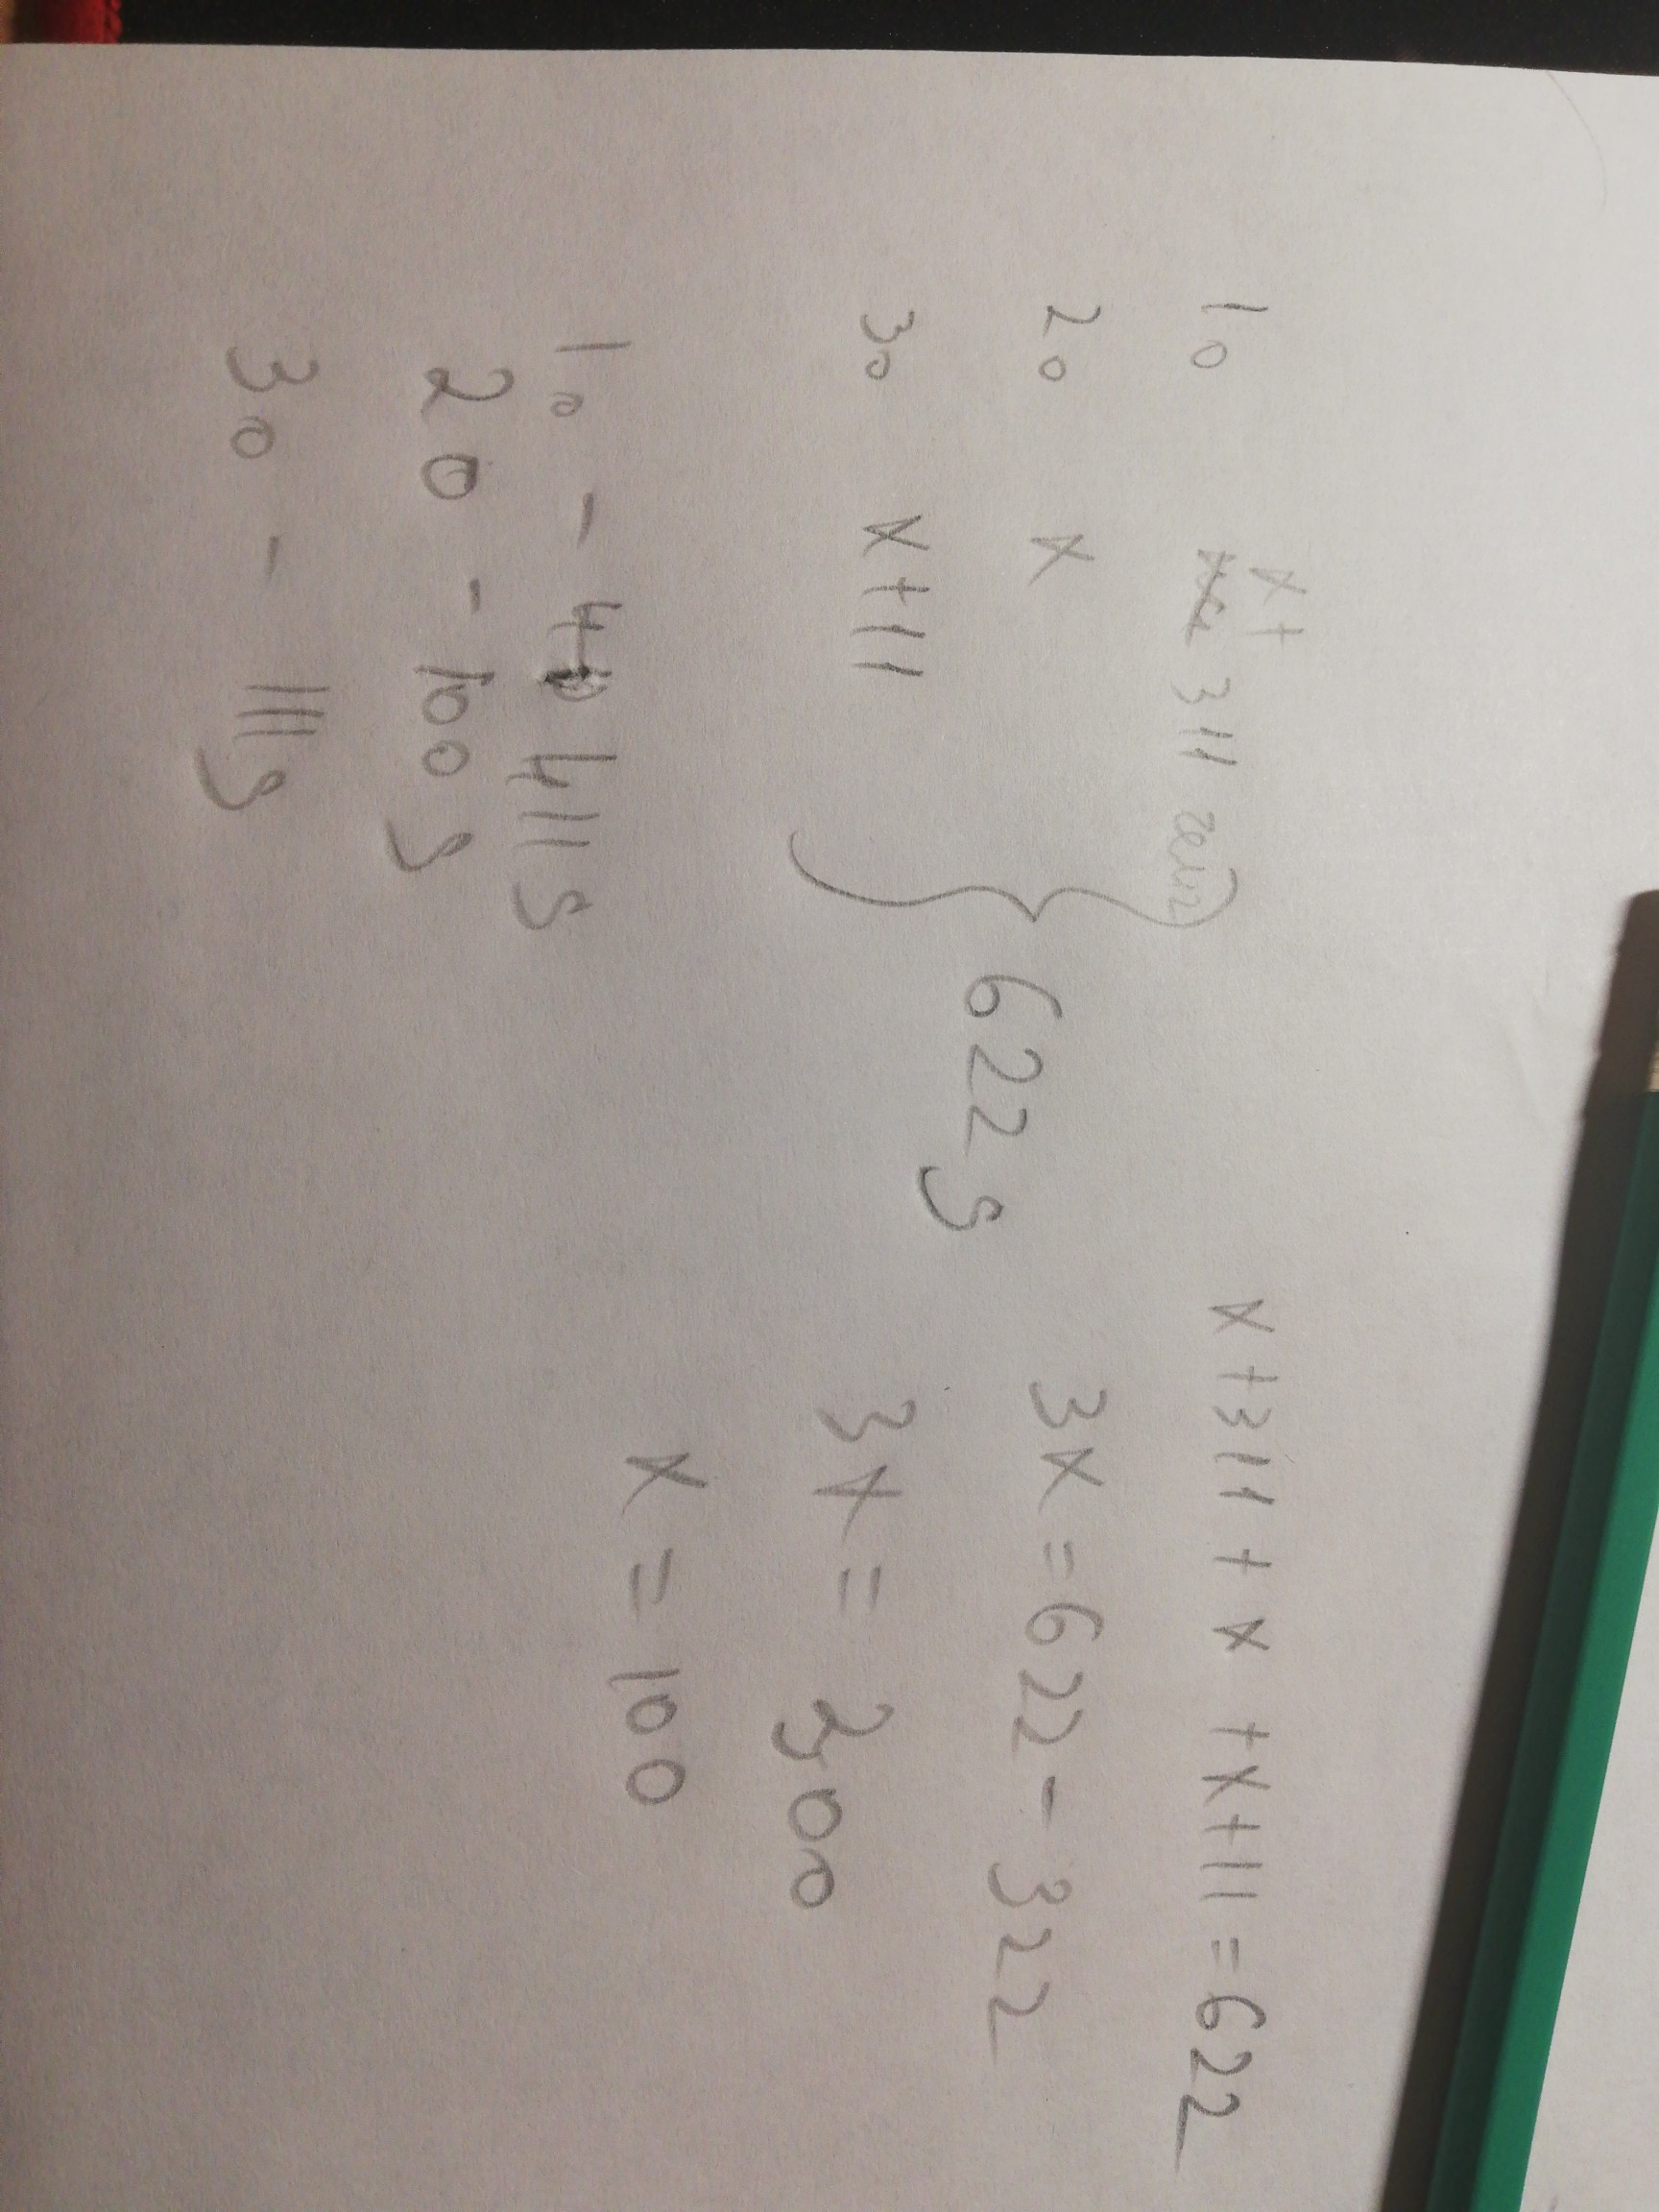 1o x+ 311
2o x
3o x+11
622 g
x+311+x+x+11=622
3x=622-322
3x=300
x=100
1o - 411 g
2o - 100 g
3o - 111 g